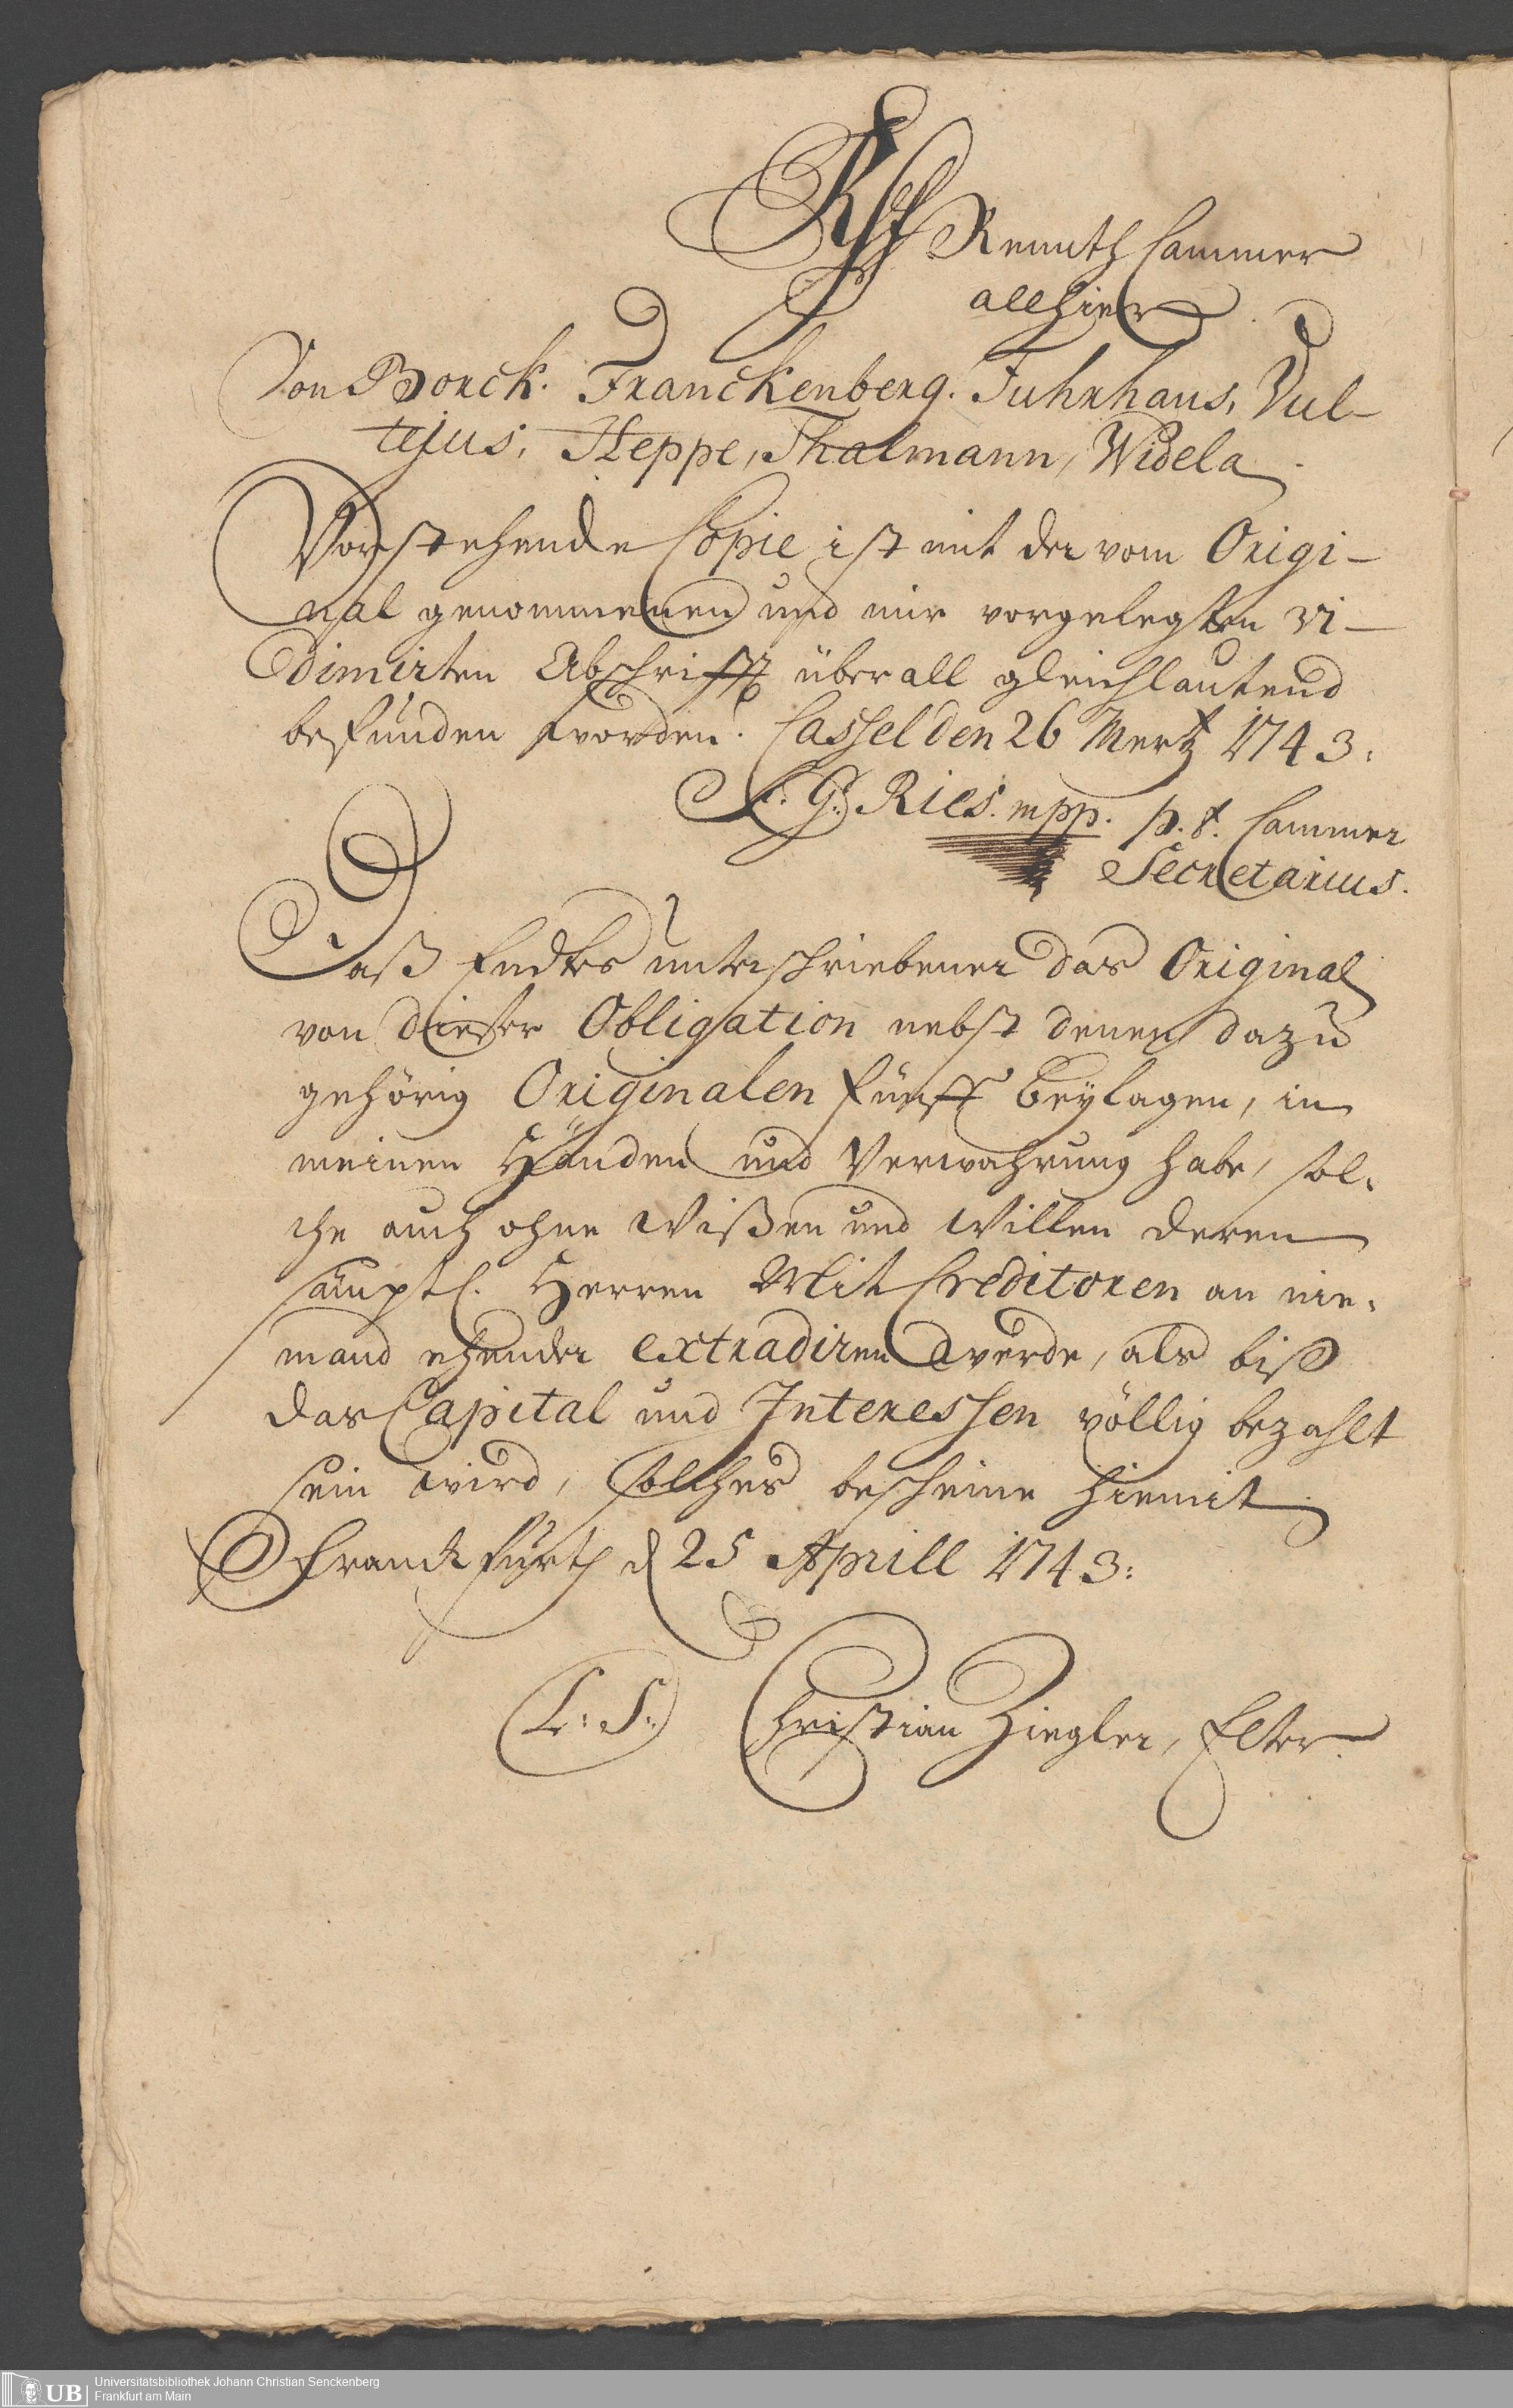 Rennth Cammer
allhier
Von Borck. Franckenberg. Fuhrhans, Vul-
tejus, Heppe, Thalmann, Widela.
Vorstehende Copie ist mit der vom Origi-
nal genommenen und mir vorgelegten vi-
dimirten Abschrifft überall gleichlautend
befunden worden. Cassel den 26 Mertz 1743.
C. G. Ries. mpp. p. t. Cammer
Secretarius.
Daß Endes unterschriebener das Original
von dieser Obligation nebst denen dazu
gehörig Originalen fünff Beylagen, in
meinen Händen und Verwahrung habe, sol-
che auch ohne Wißen und Willen deren
sämptl. Herren Mit Creditoren an nie-
mand ehender extradiren werde, als biß
das Capital und Interessen völlig bezahlt
sein wird, solches bescheine hiemit
Franckfurth d 25 Aprill 1743.
(L. S.) Christian Ziegler, Elter.
UB Universitätsbibliothek Johann Christian Senckenberg
Frankfurt am Main